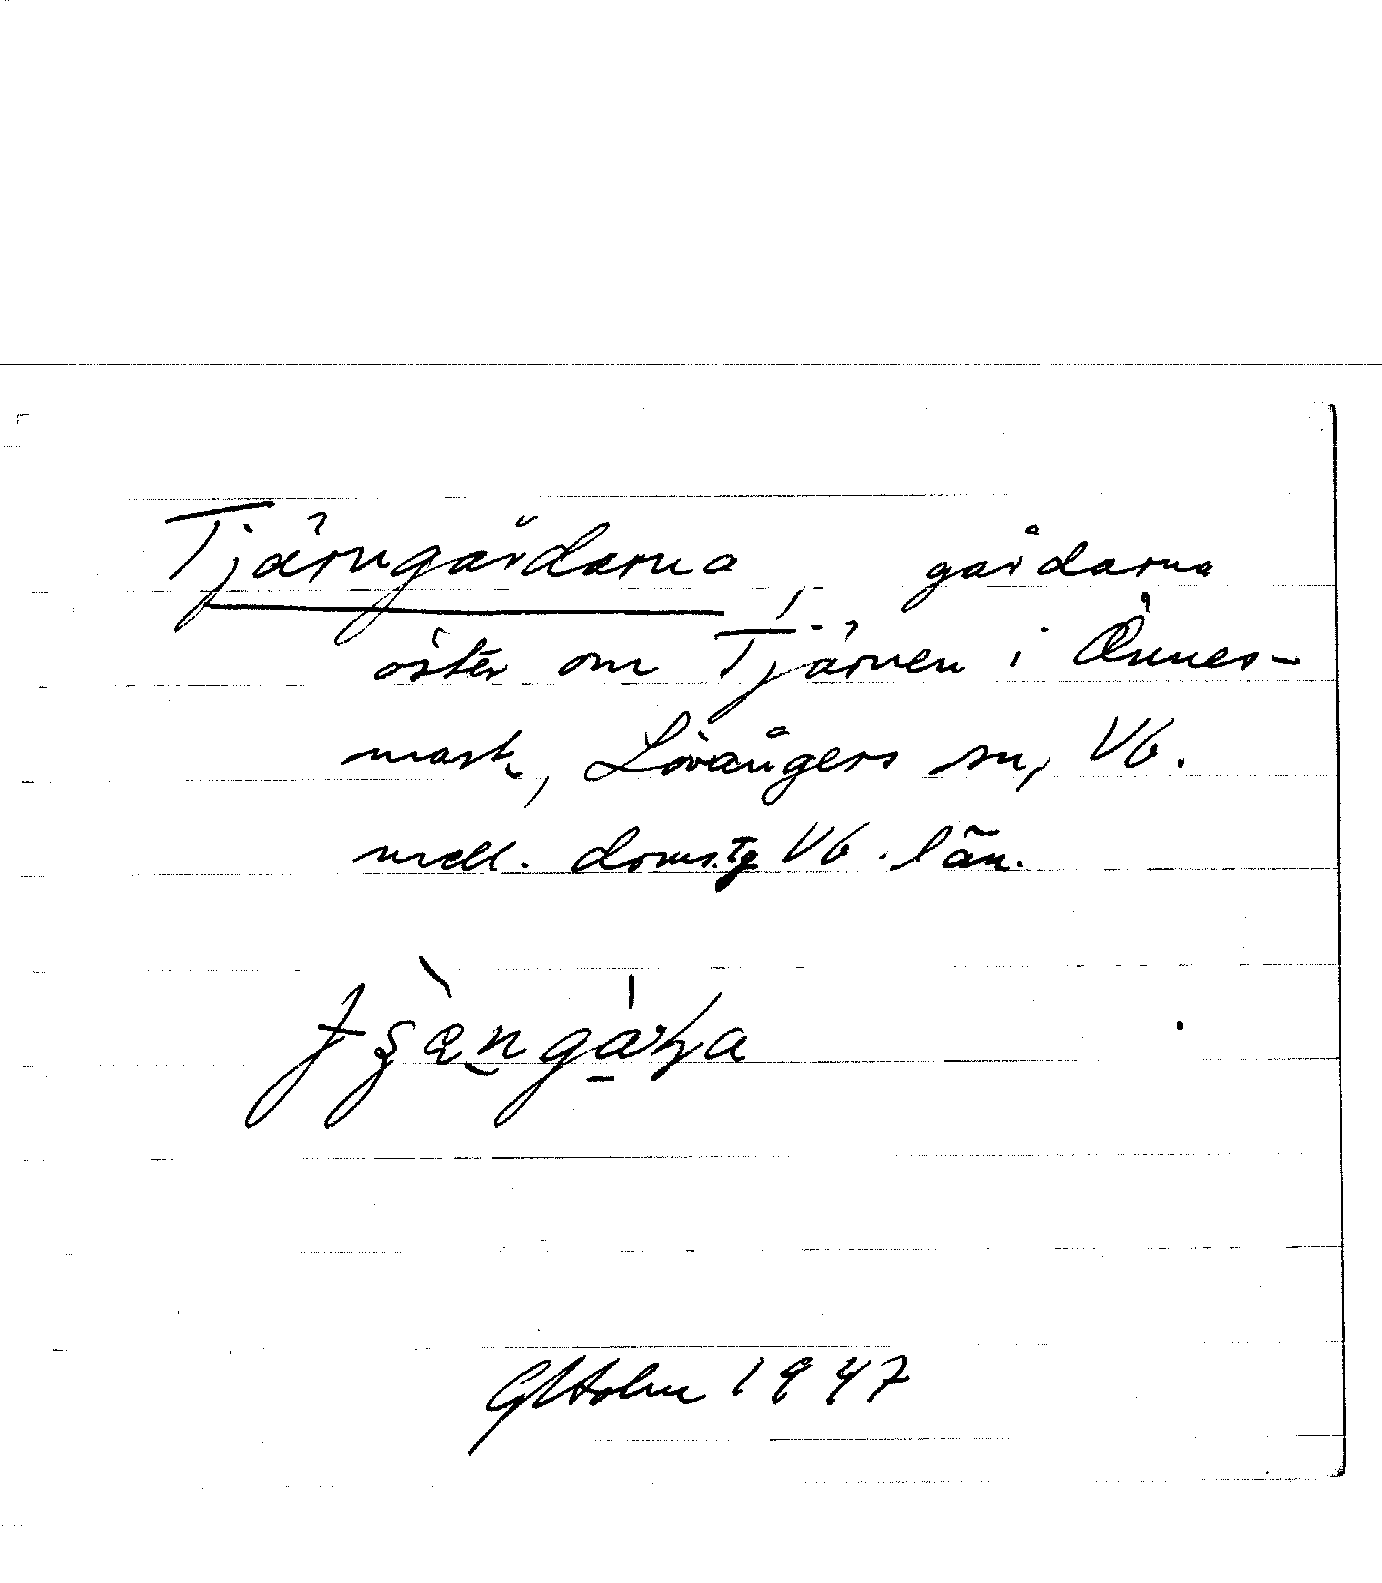 Tjärngårdarna, gårdarna
öster om Tjärnen i Önnes-
mark, Lövångers sn, Vb.
mell. doms.tg Vb. län.
G Holm 1947